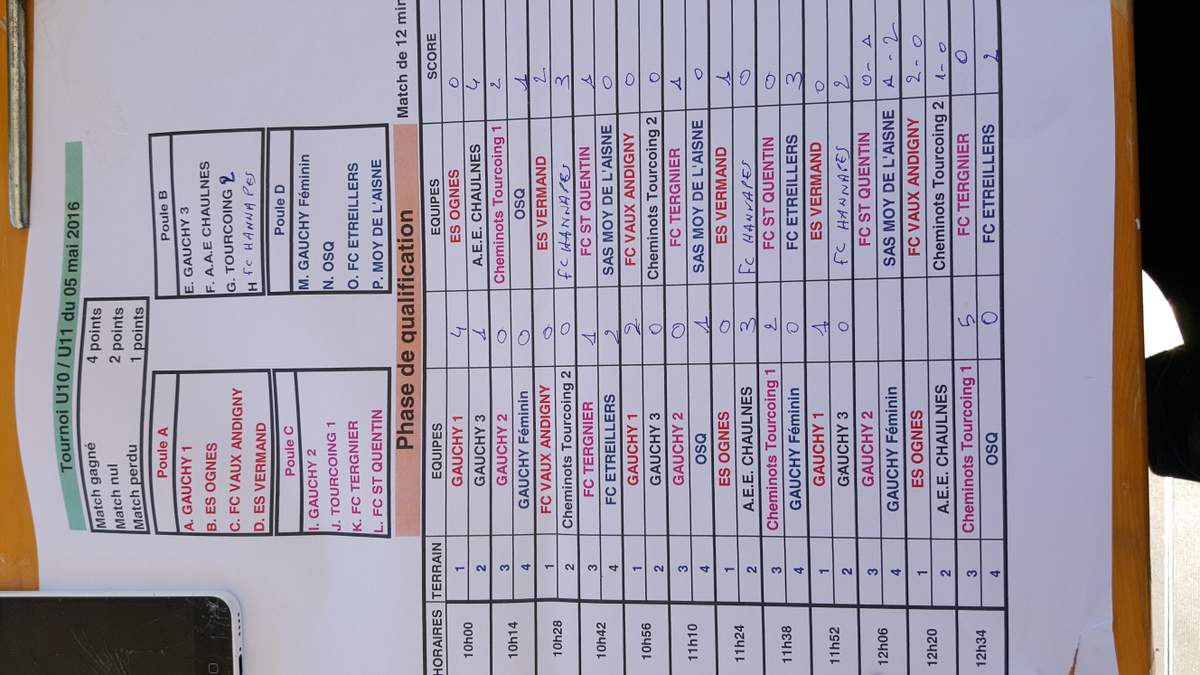 Tournoi U10 / U11 du 05 mai 2016
Match gagné 4 points
Match nul 2 points
Match perdu 1 points
Poule A
A. GAUCHY 1
B. ES OGNES
C. FC VAUX ANDIGNY
D. ES VERMAND
Poule B
E. GAUCHY 3
F. A.A.E CHAULNES
G. TOURCOING 2
H FC HANNAPES
Poule C
I. GAUCHY 2
J. TOURCOING 1
K. FC TERGNIER
L. FC ST QUENTIN
Poule D
M. GAUCHY Féminin
N. OSQ
O. FC ETREILLERS
P. MOY DE L'AISNE
Phase de qualification Match de 12 min
HORAIRES TERRAIN EQUIPES EQUIPES SCORE
10h00 1 GAUCHY 1 4 ES OGNES 0
2 GAUCHY 3 1 A.E.E. CHAULNES 4
10h14 3 GAUCHY 2 0 Cheminots Tourcoing 1 2
4 GAUCHY Féminin 0 OSQ 1
10h28 1 FC VAUX ANDIGNY 0 ES VERMAND 2
2 Cheminots Tourcoing 2 0 FC HANNAPES 3
10h42 3 FC TERGNIER 1 FC ST QUENTIN 1
4 FC ETREILLERS 2 SAS MOY DE L'AISNE 0
10h56 1 GAUCHY 1 2 FC VAUX ANDIGNY 0
2 GAUCHY 3 0 Cheminots Tourcoing 2 0
11h10 3 GAUCHY 2 0 FC TERGNIER 1
4 OSQ 1 SAS MOY DE L'AISNE 0
11h24 1 ES OGNES 0 ES VERMAND 1
2 A.E.E. CHAULNES 3 FC HANNAPES 0
11h38 3 Cheminots Tourcoing 1 2 FC ST QUENTIN 0
4 GAUCHY Féminin 0 FC ETREILLERS 3
11h52 1 GAUCHY 1 1 ES VERMAND 0
2 GAUCHY 3 0 FC HANNAPES 2
12h06 3 GAUCHY 2 FC ST QUENTIN 0-1
4 GAUCHY Féminin SAS MOY DE L'AISNE 1-2
12h20 1 ES OGNES FC VAUX ANDIGNY 2-0
2 A.E.E. CHAULNES Cheminots Tourcoing 2 1-0
12h34 3 Cheminots Tourcoing 1 5 FC TERGNIER 0
4 OSQ 0 FC ETREILLERS 2